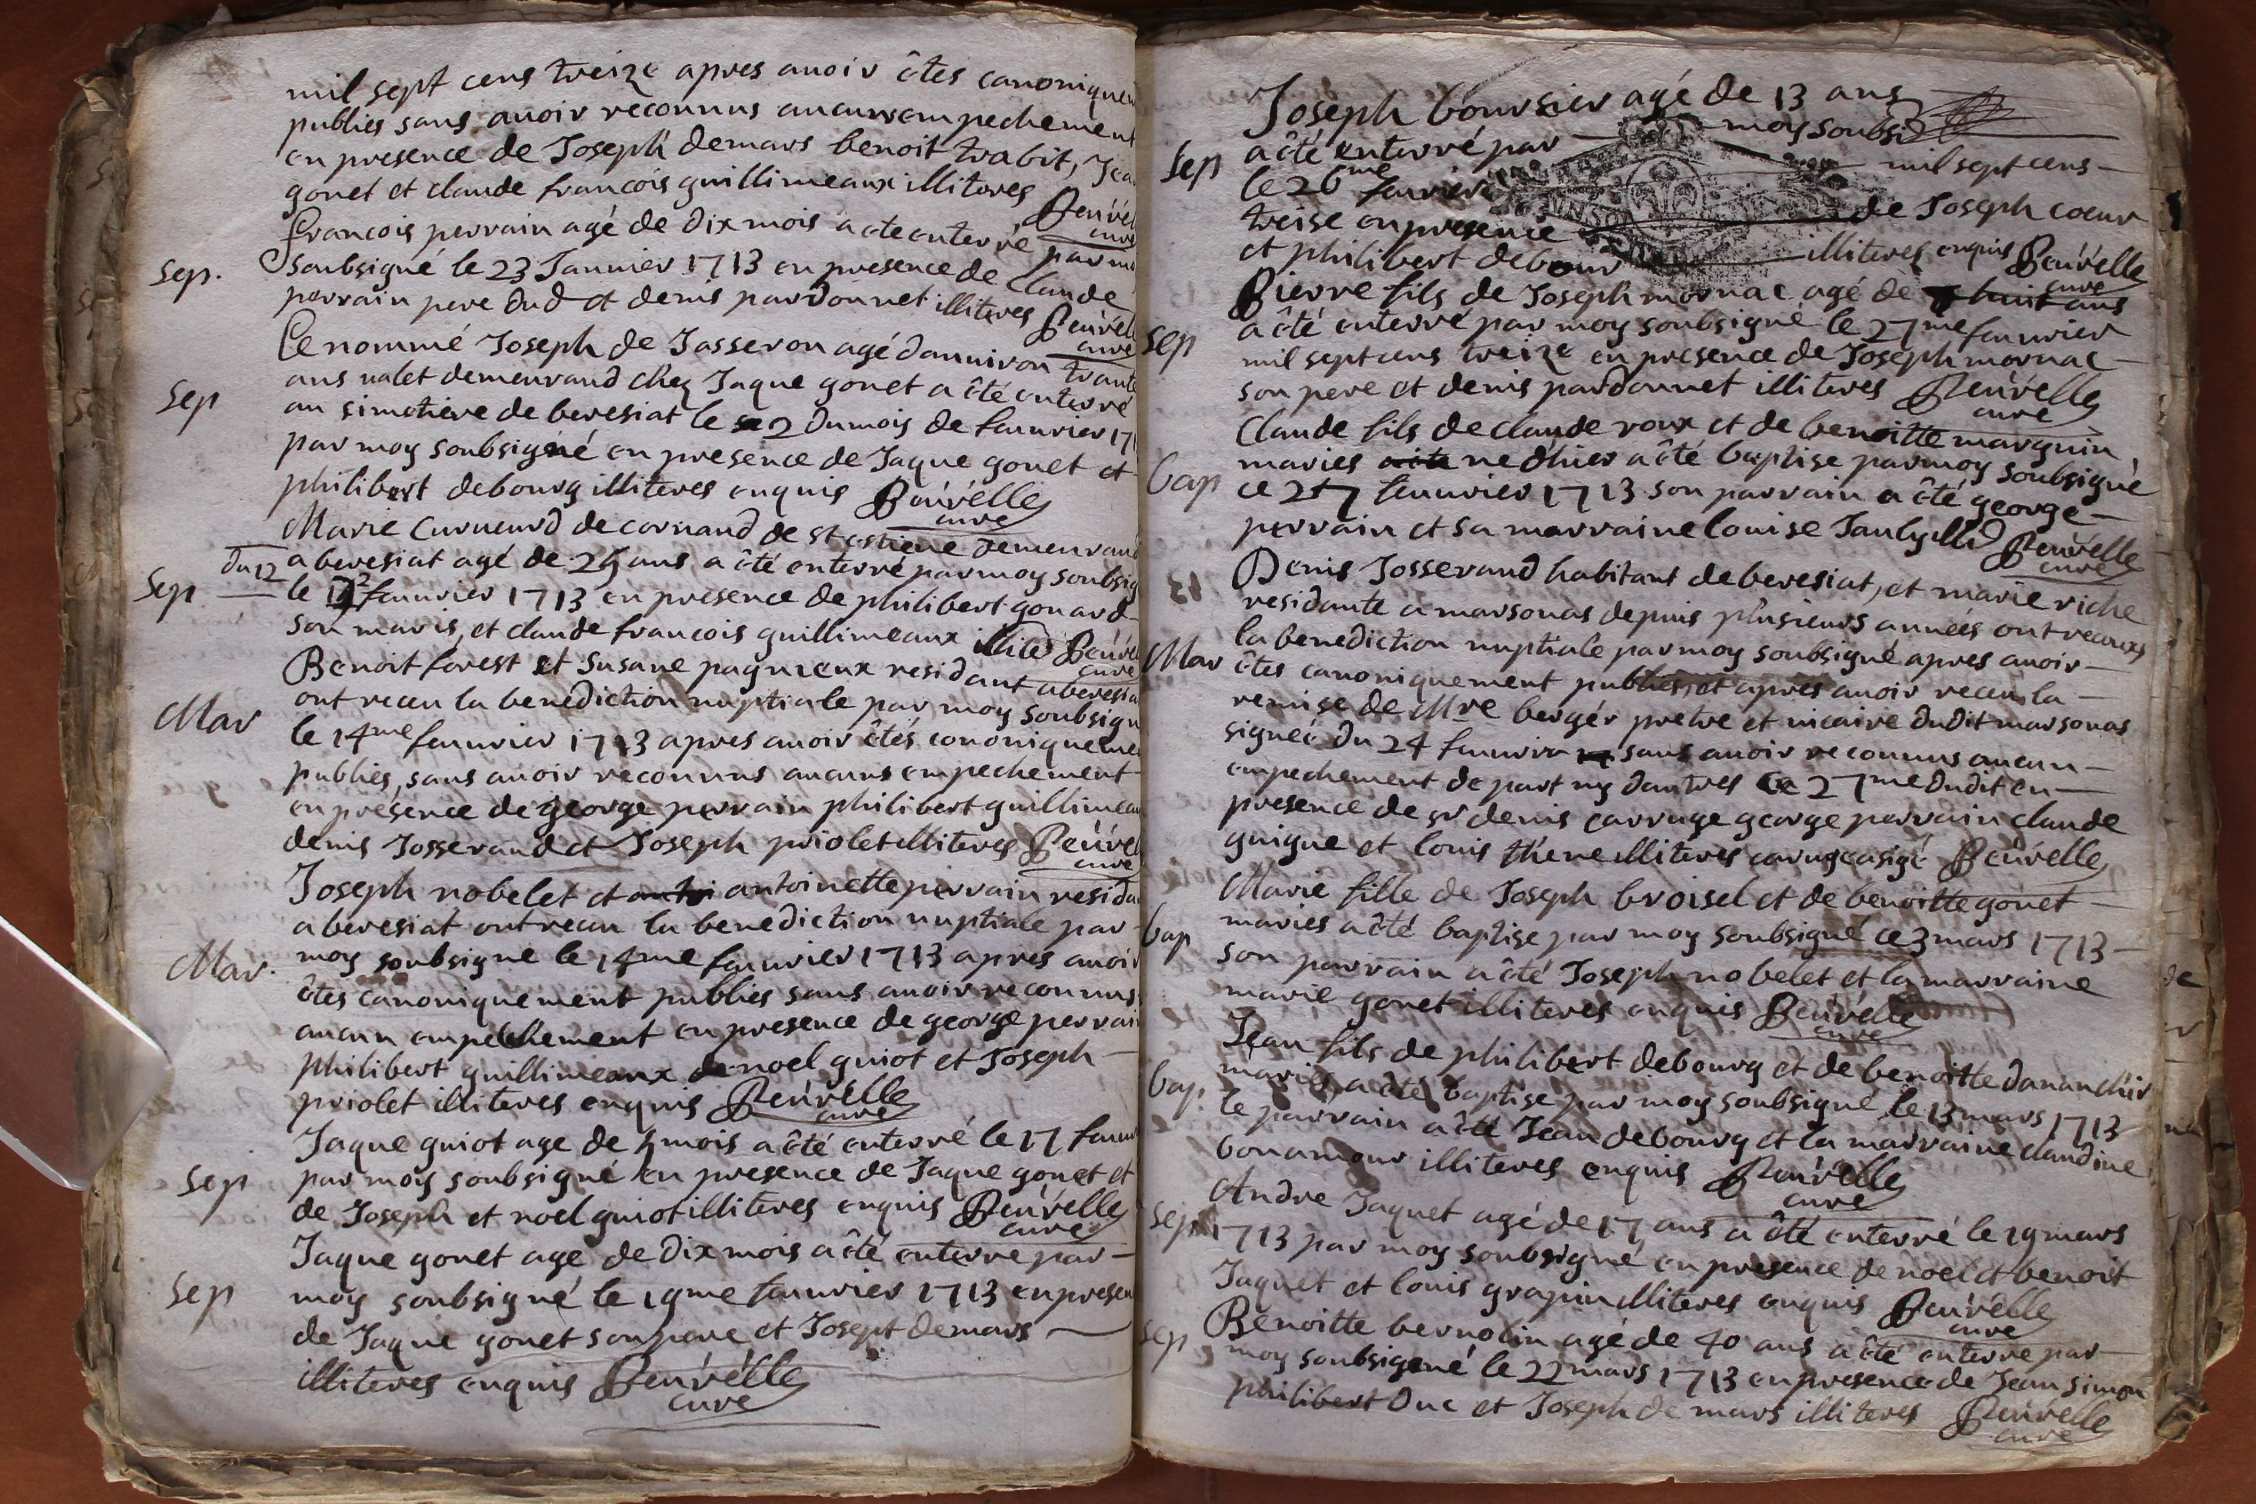 mil sept cens treize apres auoir êtes canonique
publies sans auoir reconnus aucuns empechement
en presence de Joseph demars benoit trabit, Jea
gonet et claude francois guillimeaux illiteres Beuvel
cure
francois perrain agé de dix mois a ete enterré par mo
Sep. soubsigné le 23 Januier 1713 en presence de Claude
perrain pere dud et denis pardonnet illiteres Beuvell
cure
Le nommé Joseph de Jasseron agé danuiron trante
ans ualet demeurand chez Jaque gonet a êté enterré
Sep au simetiere de beresiat le 2 du mois de feuurier 171
par moy soubsigné en presence de Jaque gonet et
philibert debourg illiteres enquis Beuvelle
cure
Marie Curneurd de cornand de st estiene demeurand
du 12 a beresiat agé de 24 ans a êté enterré par moy soubsig
Sep le 12 feuurier 1713 en presence de philibert gonard
son maris, et claude francois guillimeaux illite Beuve
cure
Benoit forest et Susane pagnieux residant a beresia
ont receu la benediction nuptiale par moy soubsign
Mar le 14me feuurier 1713 apres auoir êtés cononiqueme
publies, sans auoir reconnus aucuns empechement
en presence de george perrain philibert guillimeau
denis Josserand et Joseph priolet illiteres Beuvel
cure
Joseph nobelet et antoinette perrain resida
a beresiat ont receu la benediction nuptiale par
Mar. moy soubsigne le 14me feuurier 1713 apres auoir
êtes canoniquement publies sans auoir reconnus
aucun empechement en presence de george perrain
philibert guillimeaux noel guiot et Joseph
priolet illiteres enquis Beuvelle
cure
Jaque guiot age de 4 mois a êté enterré le 17 feuur
Sep par moy soubsigné en presence de Jaque gonet et
de Joseph et noel guiot illiteres enquis Beuvelle
cure
Jaque gonet age de dix mois a êté enterre par
Sep moy soubsigné le 19me feuurier 1713 en presen
de Jaque gonet son pere et Josept demars
illiteres enquis Beuvelle
cure
Joseph boursier agé de 13 ans
Sep a êté enterré par moy soubsi
le 26me feurier mil sept cens
treise en presence de Joseph coeur
et philibert debour illiteres enquis Beuvelle
cure
Pierre fils de Joseph mornac agé de huit ans
Sep a êté enterré par moy soubsigné le 27me feuurier
mil sept cens treize en presence de Joseph mornac
son pere et denis pardonnet illiteres Beuvelle
cure
Claude fils de claude roux et de benoitte marguin
bap maries ne d'hier a êté baptise par moy soubsigné
ce 27 feuurier 1713 son parrain a êté george
perrain et sa marraine louise Beuvelle
cure
Denis Josserand habitant de beresiat, et marie riche
residante a marsonas depuis plusieurs années ont receux
la benediction nuptiale par moy soubsigné apres auoir
Mar êtes canoniquement publies, et apres auoir receu la
remise de Mre bergér pretre et uicaire dudit marsonas
signée du 24 feuurier sans auoir reconnus aucun
empechement de part ny dautres ce 27me dudit en
presence de sr denis carruge george perrain claude
guigue et louis thene illiteres Beuvelle
Marie fille de Joseph broisel et de benoitte gonet
bap maries a êté baptise par moy soubsigné ce 3 mars 1713
son parrain a êté Joseph nobelet et la marraine
marie gonet illiteres enquis Beuvelle
cure
Jean fils de philibert debourg et de benoitte dananchir
bap. maries, a êté baptise par moy soubsigné le 13 mars 1713
le parrain a êté Jean debourg et la marraine claudine
bonamour illiteres enquis Beuvelle
cure
Andre Jaquet agé de 17 ans a êté enterré le 19 mars
Sep 1713 par moy soubsigné en presence de noel et benoit
Jaquet et louis grapin illiteres enquis Beuvelle
cure
Benoitte bernolin agé de 40 ans a êté enterre par
Sep moy soubsigené le 22 mars 1713 en presence de Jean simon
philibert Duc et Joseph de mars illiteres Beuvelle
cure